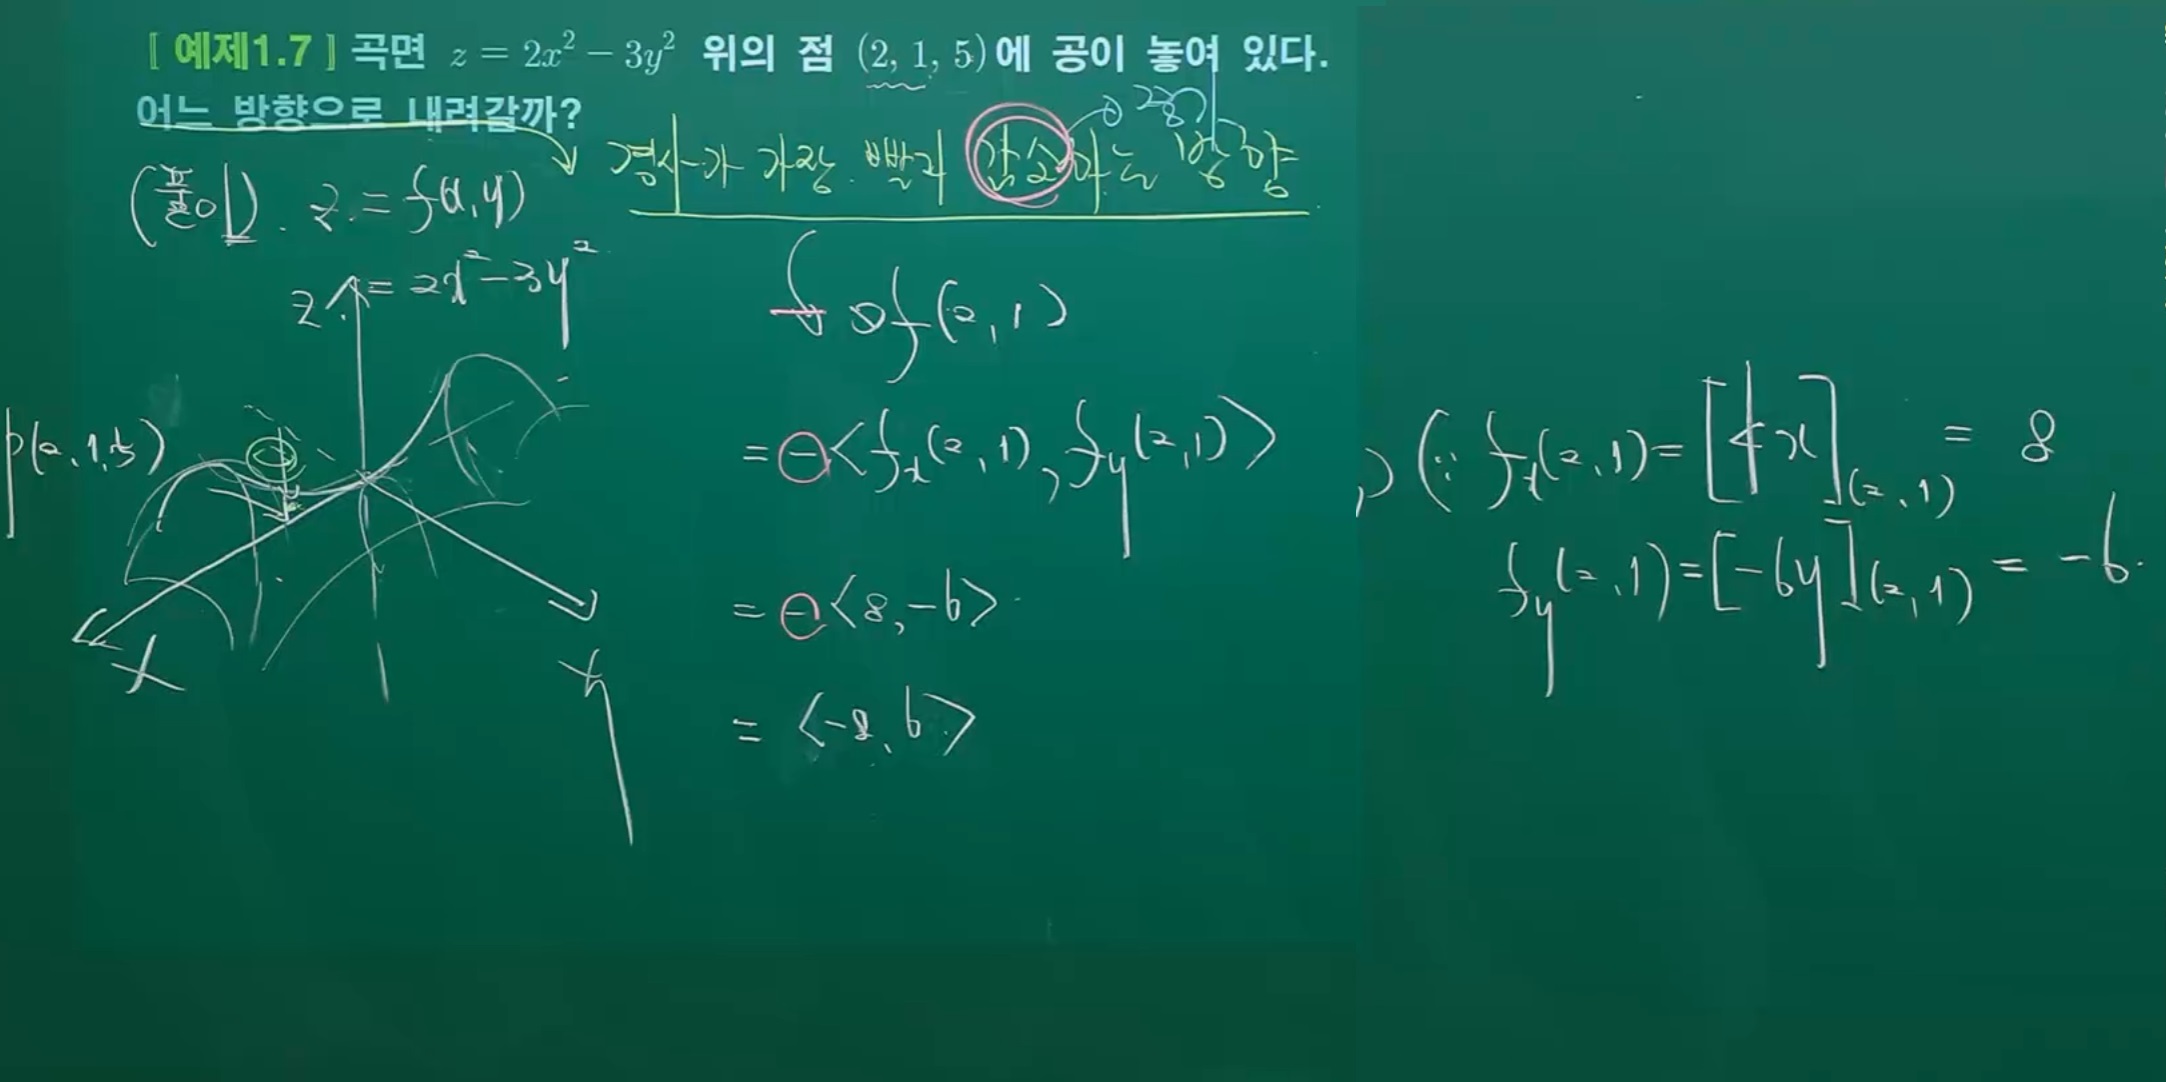 [ 예제1.7 ] 곡면 z = 2x² − 3y² 위의 점 (2, 1, 5)에 공이 놓여 있다.
어느 방향으로 내려갈까?
경사가 가장 빨리 감소하는 방향
(풀이). z = f(x,y)
= 2x² − 3y²
z
P(2,1,5)
x
y
− ∇f(2,1)
= − <f_x(2,1), f_y(2,1)>
= − <8, −6>
= <−8, 6>
(∵ f_x(2,1) = [4x]_(2,1) = 8
f_y(2,1) = [−6y]_(2,1) = −6.